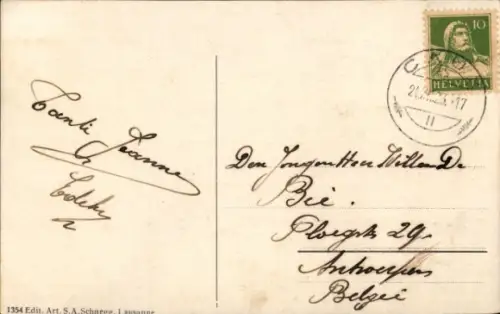 Tante Jeanne
10
HELVETIA
Den Jongen Heer Willem De
Bie.
Ploegstr 29.
Antwerpen
België
1354 Edit. Art. S.A. Schnegg, Lausanne